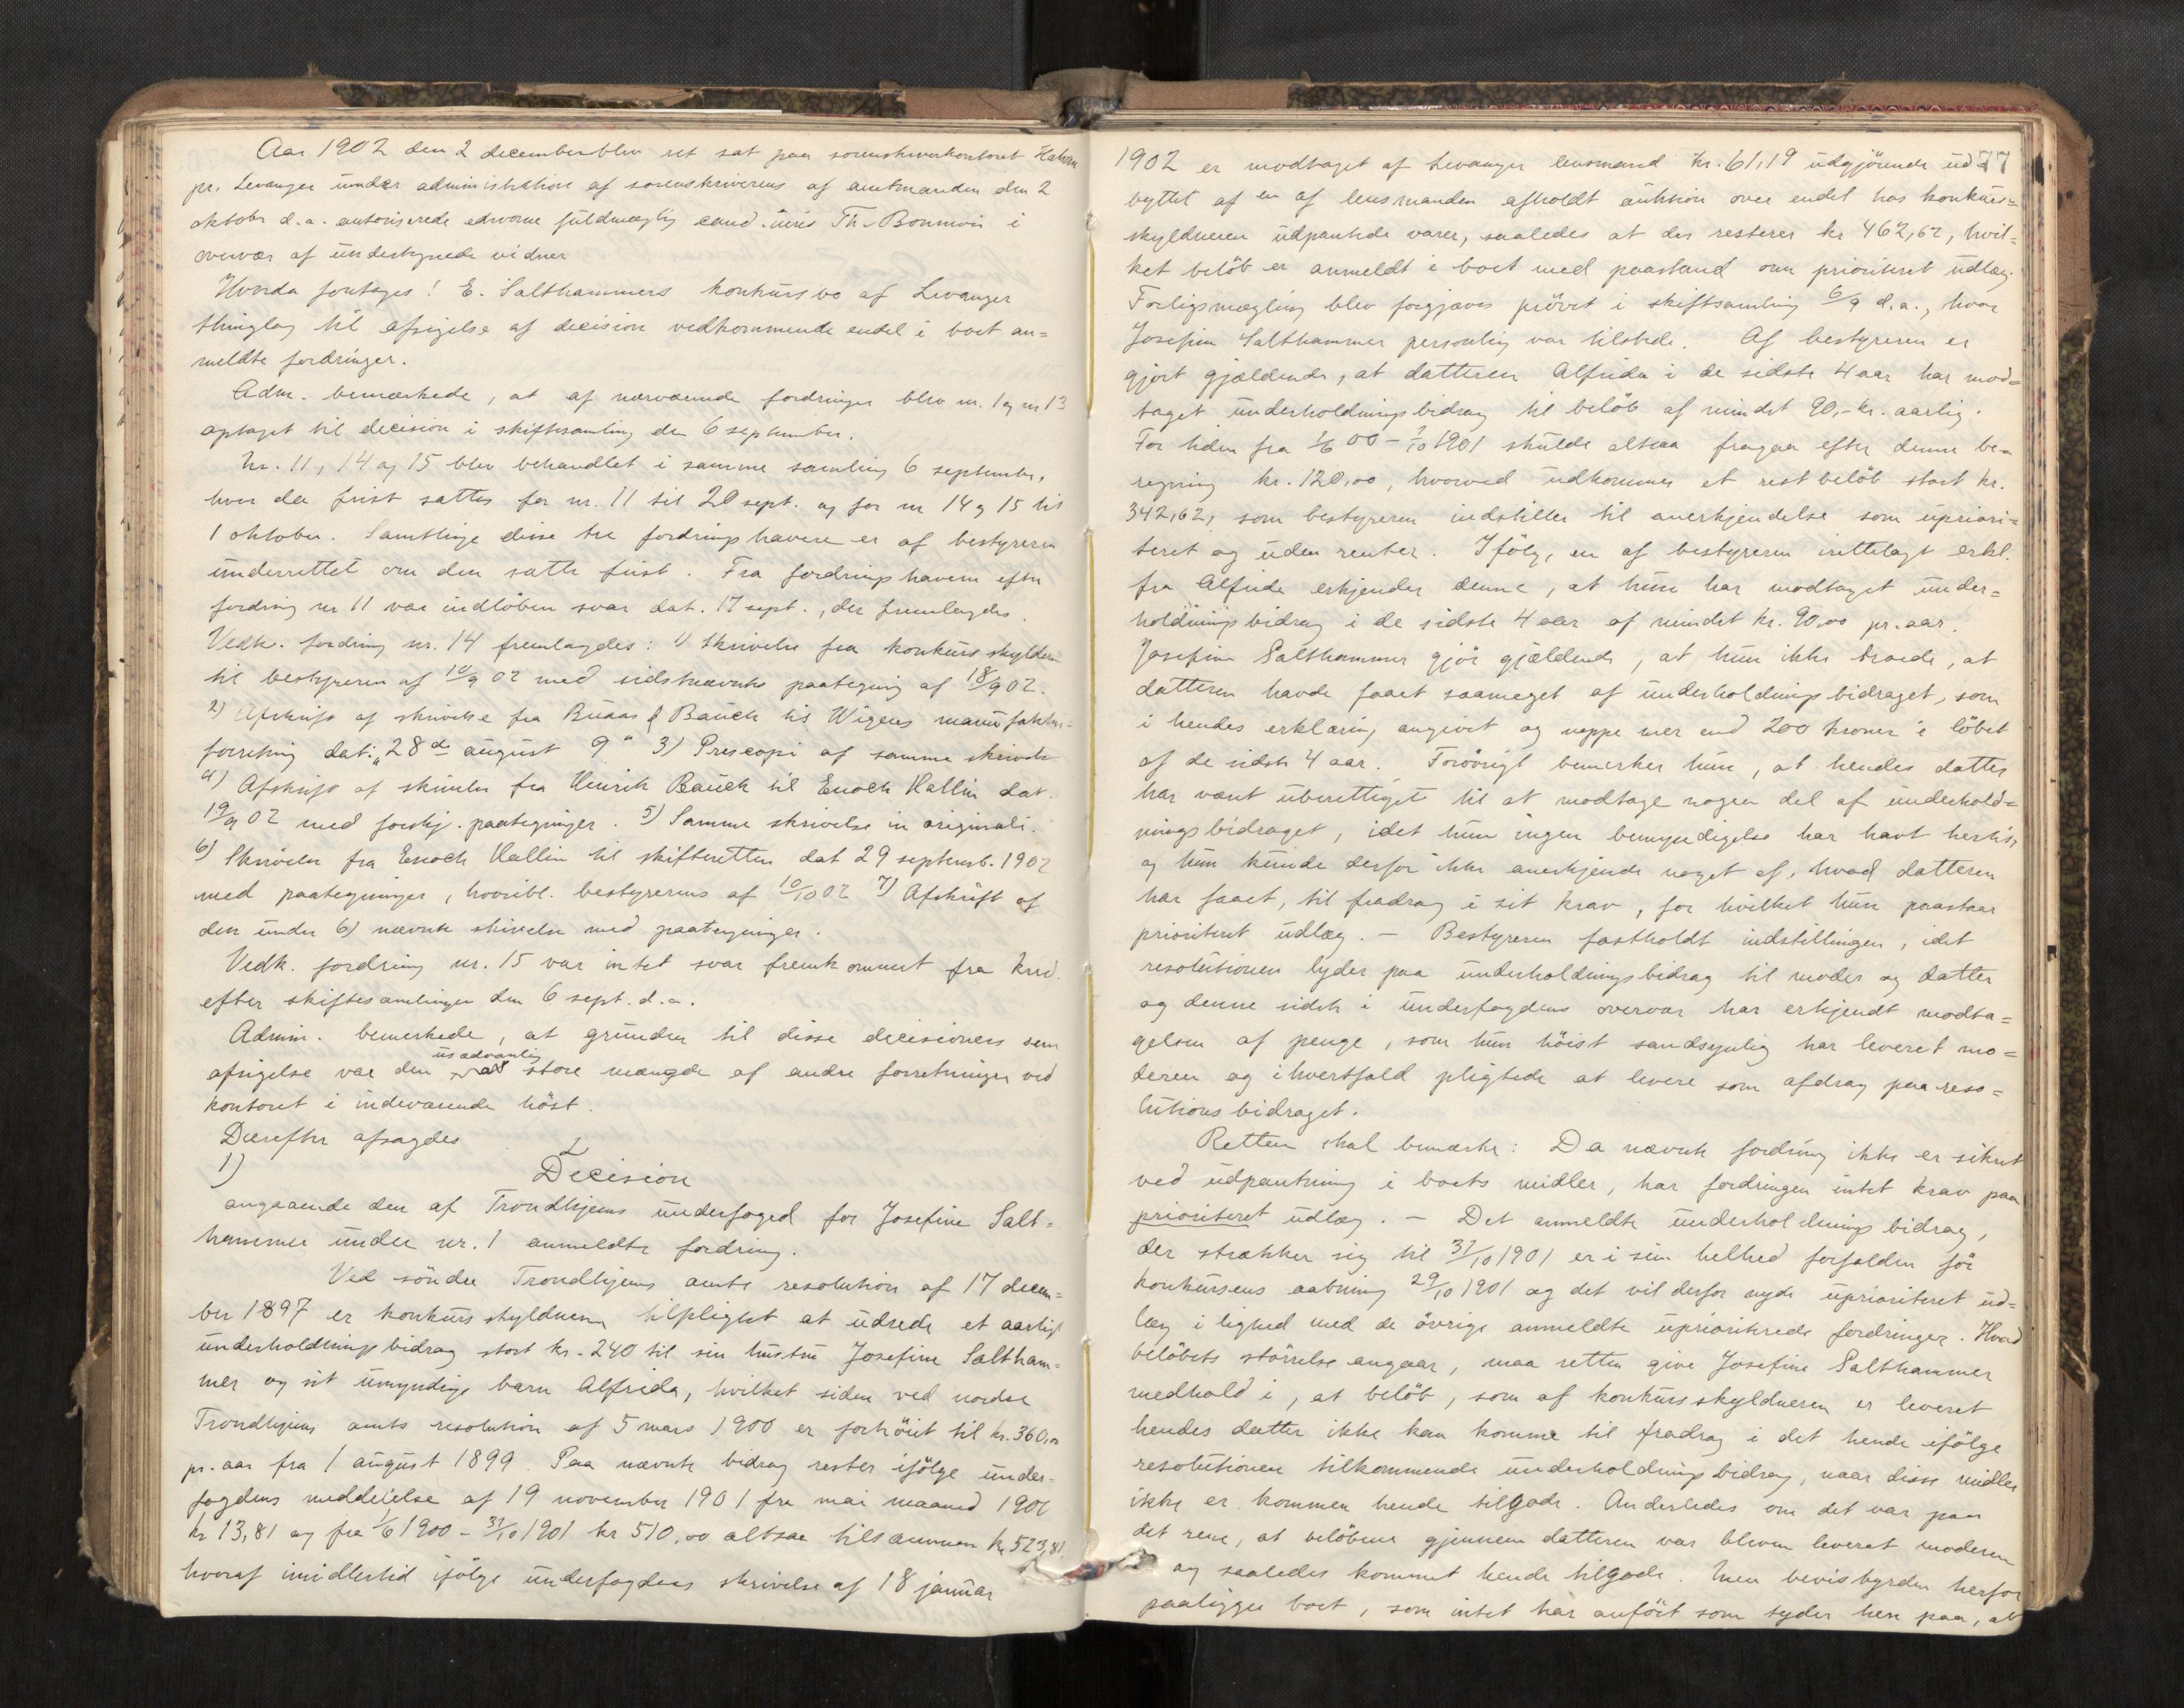 Aar 1902 den 2 december blev ret sat paa sorenskriverkontoret
pr. Levanger under administration af sorenskriverens af amtmanden den 2
oktober d.a. autoriserede edsvorne fuldmægtig cand. juris Th.
overvær af undertegnede vidner
Hvorda foretoges! E. Salthammers konkursbo af Levanger
thinglag til afsigelse af decision vedkommende endel i boet an=
meldte fordringer.
Adm. bemærkede, at af nærværende fordringer blev nr. 1 og nr 13
optaget til decision i skiftesamling den 6 september.
Nr. 11, 14 og 15 blev behandlet i samme samling 6 september,
hvor der frist sattes for nr. 11 til 20 sept. og for nr 14 og 15 til
1 oktober. Samtlige disse tre fordringshavere er af bestyreren
underrettet om den satte frist. Fra fordringshaveren efter
fordring nr 11 var indløben svar dat. 17 sept., der fremlagdes.
Vedk. fordring nr. 14 fremlagdes: 1) Skrivelse fra konkursskyldn
til bestyreren af 10/9 02 med sidstnævntes paategning af 18/9 02.
2) Afskrift af skrivelse fra Buaas & Bauck til Wigens manufaktur=
forretning dat: "28de august 9" 3) Prescopi af samme skrivelse
4) Afskrift af skrivelse fra Henrik Bauck til Enoch Hallin dat.
19/9 02 med forskj. paategninger. 5) Samme skrivelse in originali.
6) Skrivelse fra Enoch Hallin til skifteretten dat 29 septemb. 1902
med paategninger, hvoribl. bestyrerens af 10/10 02 7) Afskrift af
den under 6) nævnte skrivelse med paategninger.
Vedk. fordring nr. 15 var intet svar fremkommet fra kred.
efter skiftesamlingen den 6 sept. d.a.
Admin. bemerkede, at grunden til disse decisioners sene
afsigelse var den usædvanlig store mængde af andre forretninger ved
kontoret i indeværende höst.
Derefter afsagdes
1)
Decision
angaaende den af Trondhjems underfoged for Josefine Salt=
hammer under nr. 1 anmeldte fordring.
Ved söndre Trondhjems amts resolution af 17 decem=
ber 1897 er konkursskyldneren tilpligtet at udrede et aarligt
underholdningsbidrag stort kr. 240 til sin hustru Josefine Saltham=
mer og sit umyndige barn Alfrida, hvilket siden ved nordre
Trondhjems amts resolution af 5 mars 1900 er forhöiet til kr. 360,00
pr. aar fra 1 august 1899. Paa nævnte bidrag rester ifölge under=
fogdens meddelelse af 19 november 1901 fra mai maaned 1900
kr 13,81 og fra 1/6 1900 - 31/10 1901 kr 510,00 altsaa tilsammen kr. 523,81,
hvoraf imidlertid ifölge underfogdens skrivelse af 18 januar
77
1902 er modtaget af Levanger lensmand kr. 61,19 udgjörende ud=
byttet af en af lensmanden afholdt auktion over endel hos konkurs=
skyldneren udpantede varer, saaledes at der resterer kr 462,62, hvil=
ket belöb er anmeldt i boet med paastand om prioriteret udlæg.
Forligsmægling blev forgjæves prövet i skiftsamling 6/9 d.a., hvor
Josefine Salthammer personlig var tilstede. Af bestyreren er
gjort gjældende, at datteren Alfrida i de sidste 4 aar har mod=
taget underholdningsbidrag til belöb af mindst 90,- kr. aarlig.
For tiden fra 1/6 00 - 1/10 1901 skulde altsaa fragaa efter denne be=
regning kr. 120,00, hvorved udkommer et restbelöb stort kr.
342,62, som bestyreren indstiller til anerkjendelse som upriori=
teret og uden renter. Ifölge en af bestyreren irettelagt erkl.
fra Alfride erkjender denne, at hun har modtaget under=
holdningsbidrag i de sidste 4 aar af mindst kr. 90,00 pr. aar.
Josefine Salthammer gjör gjældende, at hun ikke troede, at
datteren havde faaet saameget af underholdningsbidraget, som
i hendes erklæring angivet og neppe mer end 200 kroner i löbet
af de sidste 4 aar. Forövrigt bemerker hun, at hendes datter
har været uberettiget til at modtage nogen del af underhold=
ningsbidraget, idet hun ingen bemyndigelse har havt hertil,
og hun kunde derfor ikke anerkjende noget af, hvad datteren
har faaet, til fradrag i sit krav, for hvilket hun paastaar
prioriteret udlæg. - Bestyreren fastholdt indstillingen, idet
resolutionen lyder paa underholdningsbidrag til moder og datter
og denne sidste i underfogdens overvær har erkjendt modta=
gelsen af penge, som hun höist sandsynlig har leveret mo=
deren og ihvertfald pligtede at levere som afdrag paa reso=
lutionsbidraget.
Retten skal bemærke: Da nævnte fordring ikke er sikret
ved udpantning i boets midler, har fordringen intet krav paa
prioriteret udlæg. - Det anmeldte underholdningsbidrag,
der strækker sig til 31/10 1901 er i sin helhed forfalden för
konkursens aabning 29/10 1901 og det vil derfor nyde uprioriteret ud=
læg i lighed med de övrige anmeldte uprioriterede fordringer. Hvad
belöbets störrelse angaar, maa retten give Josefine Salthammer
medhold i, at belöb, som af konkursskyldneren er leveret
hendes datter ikke kan komme til fradrag i det hende ifölge
resolutionen tilkommende underholdningsbidrag, naar disse midler
ikke er kommen hende tilgode. Anderledes om det var paa
det rene, at belöbene gjennem datteren var bleven leveret moderen
og saaledes kommet hende tilgode. Men bevisbyrden herfor
paaligger boet, som intet har anfört som tyder hen paa, at